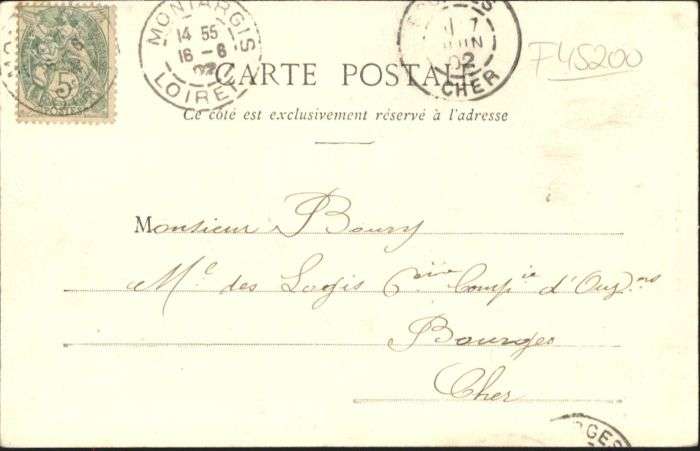 5c
POSTES
MONTARGIS
14 55
16 - 6
02
LOIRET
7
JUIN
02
CHER
F45200
CARTE POSTALE
Ce côté est exclusivement réservé à l'adresse
Monsieur Boury
Mel des Logis 6eme Compie d'Ouvrs
Bourges
Cher
RGES